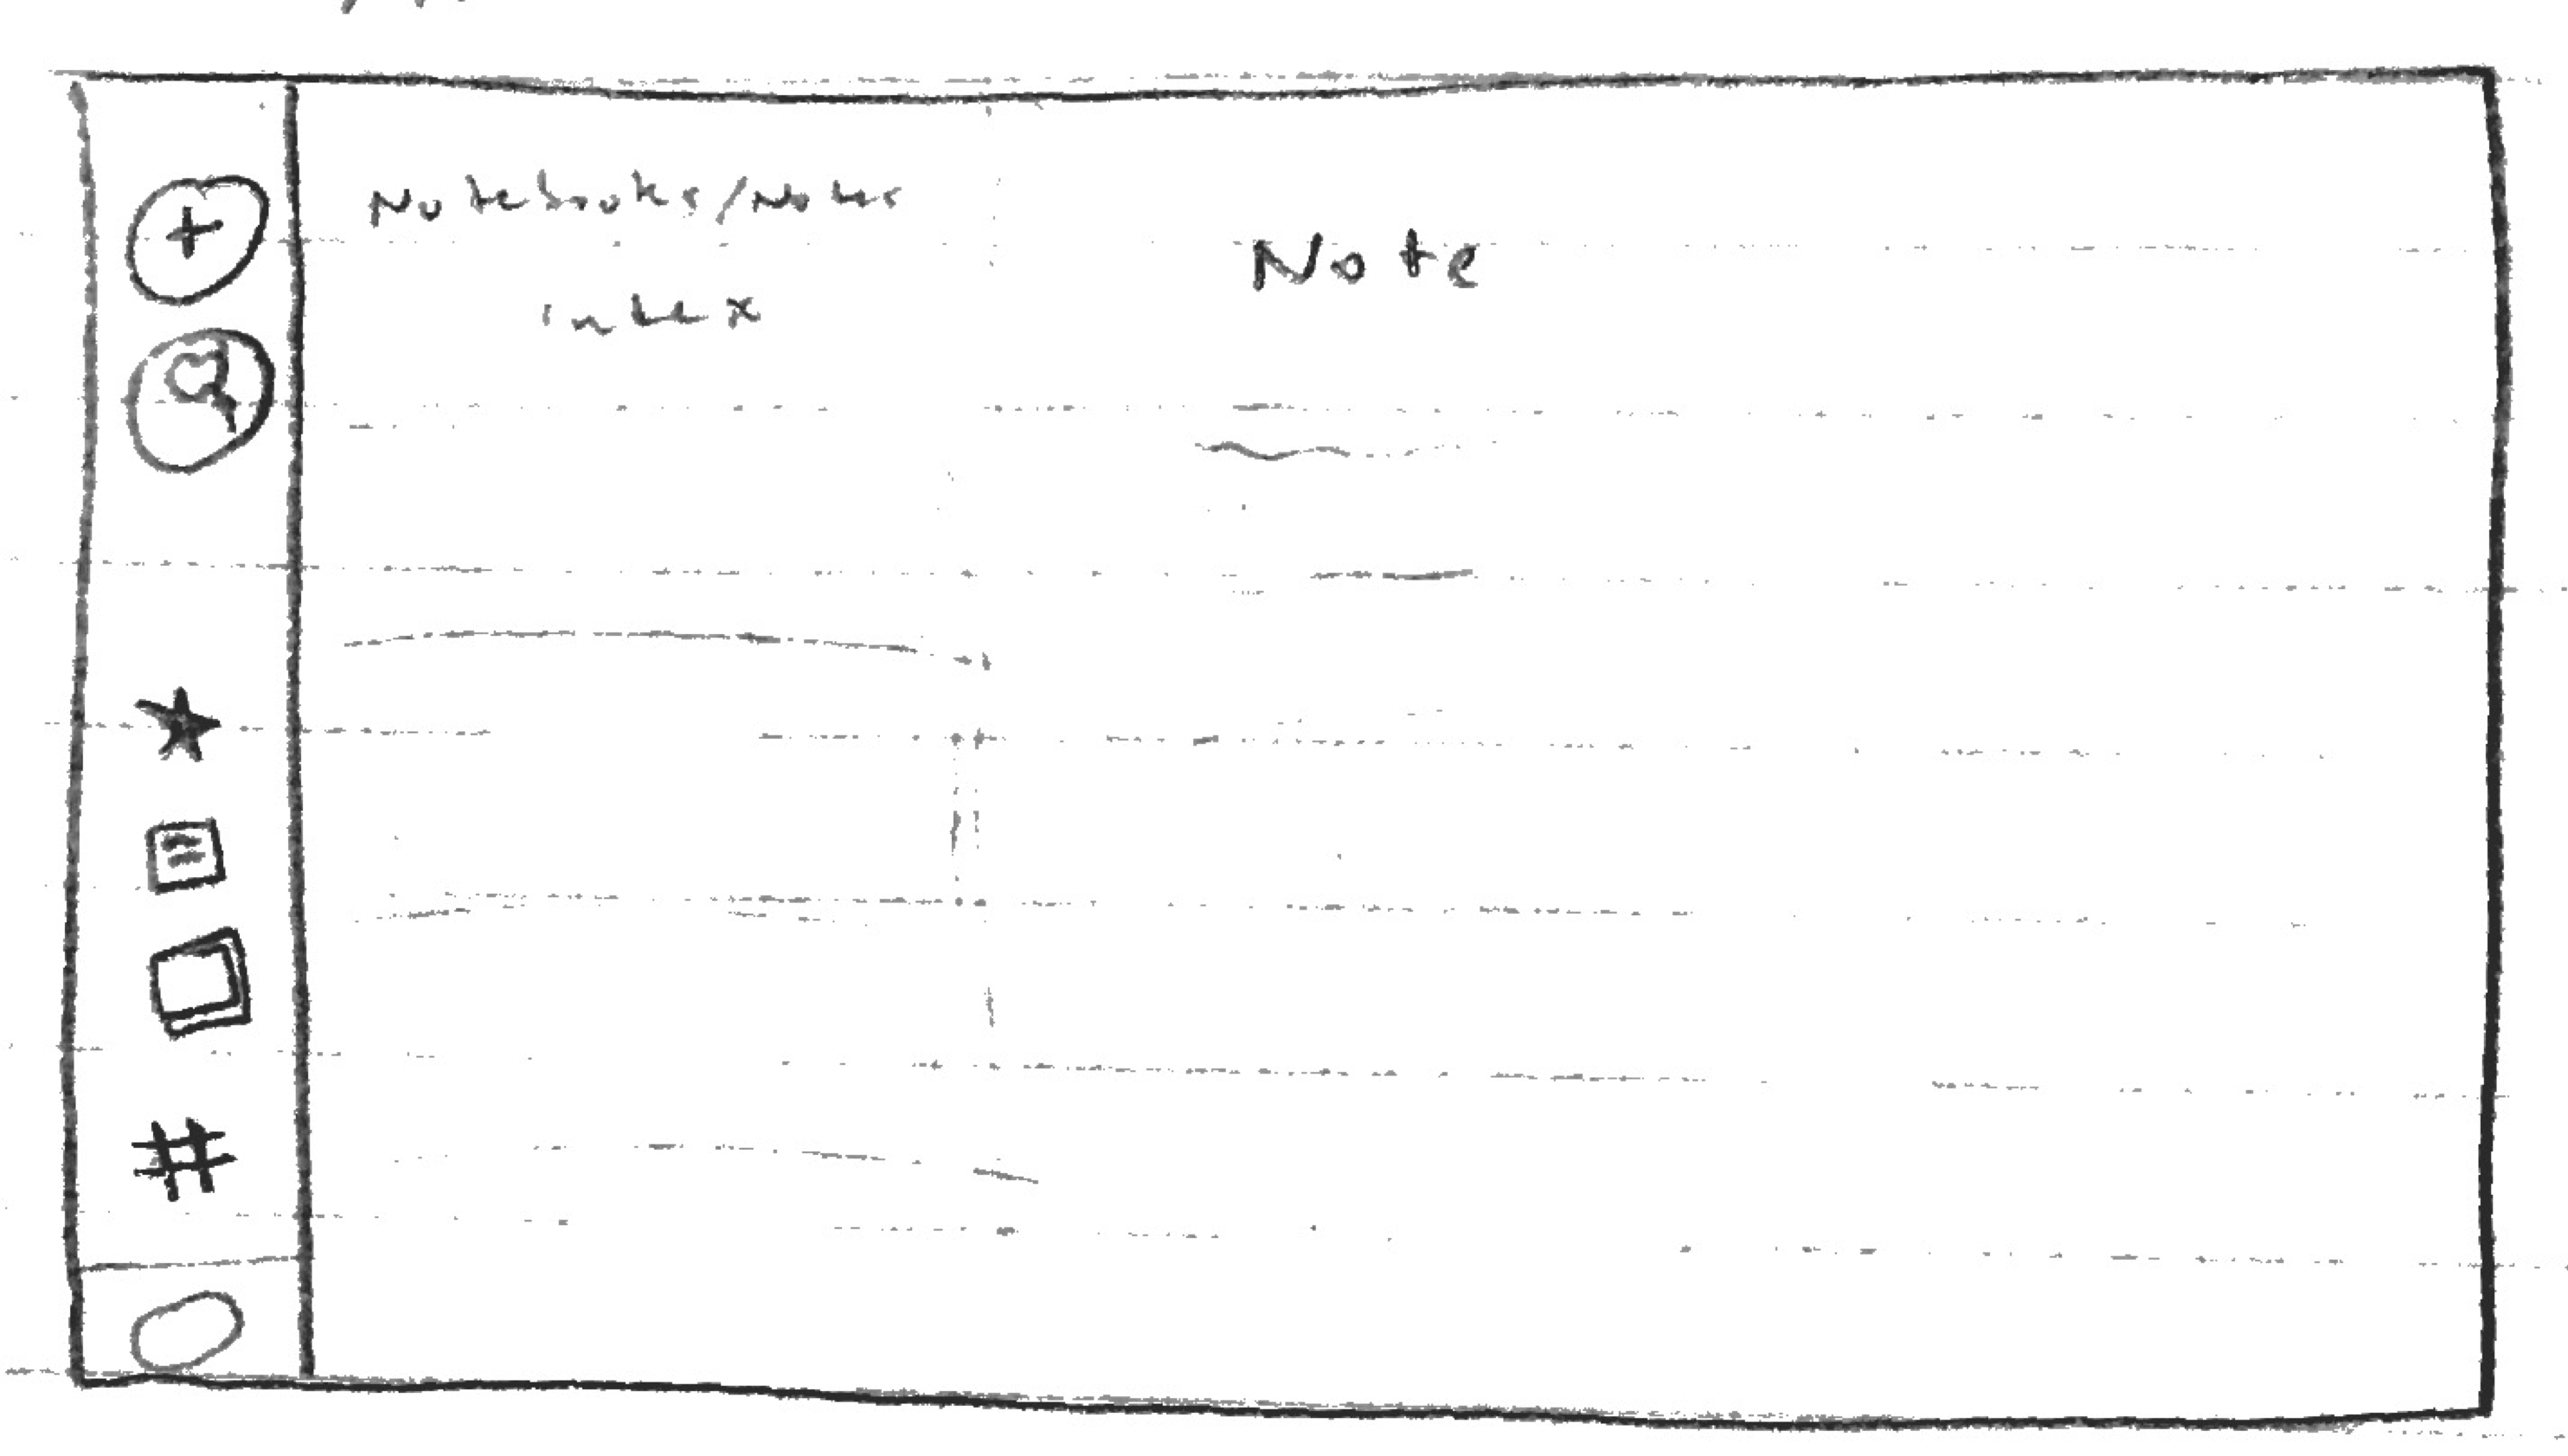 Notebooks/Notes
index
Note
#